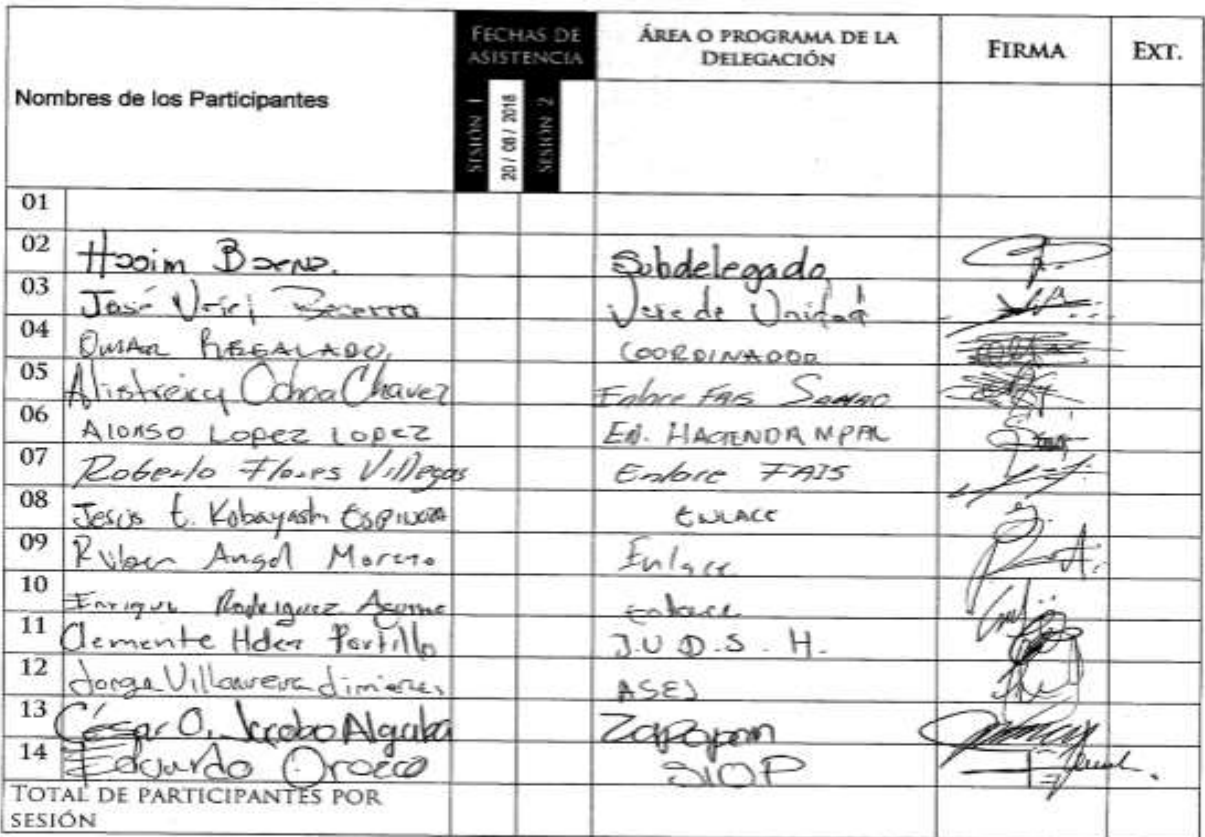 Nombres de los Participantes
FECHAS DE ASISTENCIA
SESIÓN 1
20 / 08 / 2018
SESIÓN 2
ÁREA O PROGRAMA DE LA DELEGACIÓN
FIRMA
EXT.
01
02 Hasim Baena. Subdelegado
03 José Uriel Becerra Jefe de Unidad
04 OMAR REGALADO. COORDINADOR
05 Ochoa Chavez Enlace FAIS
06 ALONSO LOPEZ LOPEZ EN. HACIENDA MPAL
07 Roberto Flores Villegas Enlace FAIS
08 Jesús E. Kobayashi ESPINOZA ENLACE
09 Ruben Angel Moreno Enlace
10 Enrique Rodriguez enlace
11 Clemente Hdez Portillo J.U.D.S.H.
12 Jorge Villanueva Jimenez ASEJ
13 César O. Jacobo Zapopan
14 Eduardo Orozco SIOP
TOTAL DE PARTICIPANTES POR SESIÓN